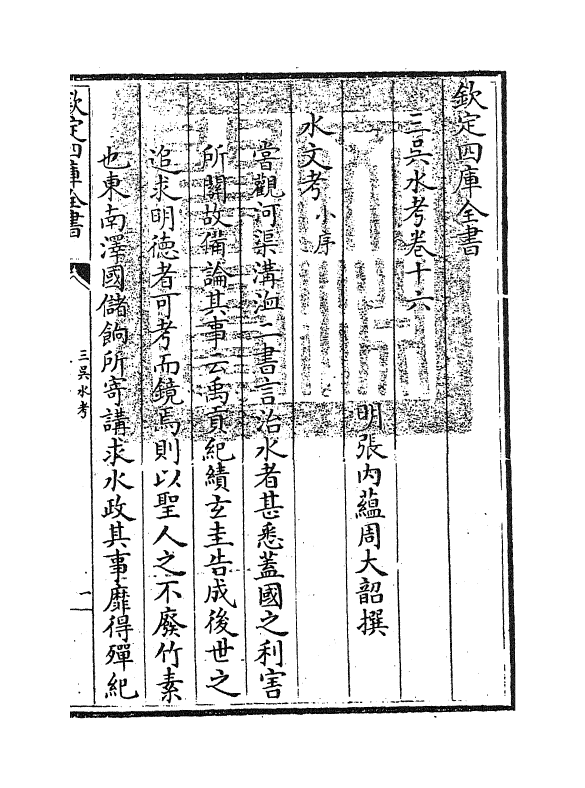 欽定四庫全書
三吳水考卷十六
明張內蘊周大韶撰
水文考小序
嘗觀河渠溝洫二書言治水者甚悉蓋國之利害
所關故備論其事云禹貢紀績玄圭告成後世之
追求明德者可考而鏡焉則以聖人之不廢竹素
也東南澤國儲餉所寄講求水政其事靡得殫紀
欽定四庫全書
三吳水考
一